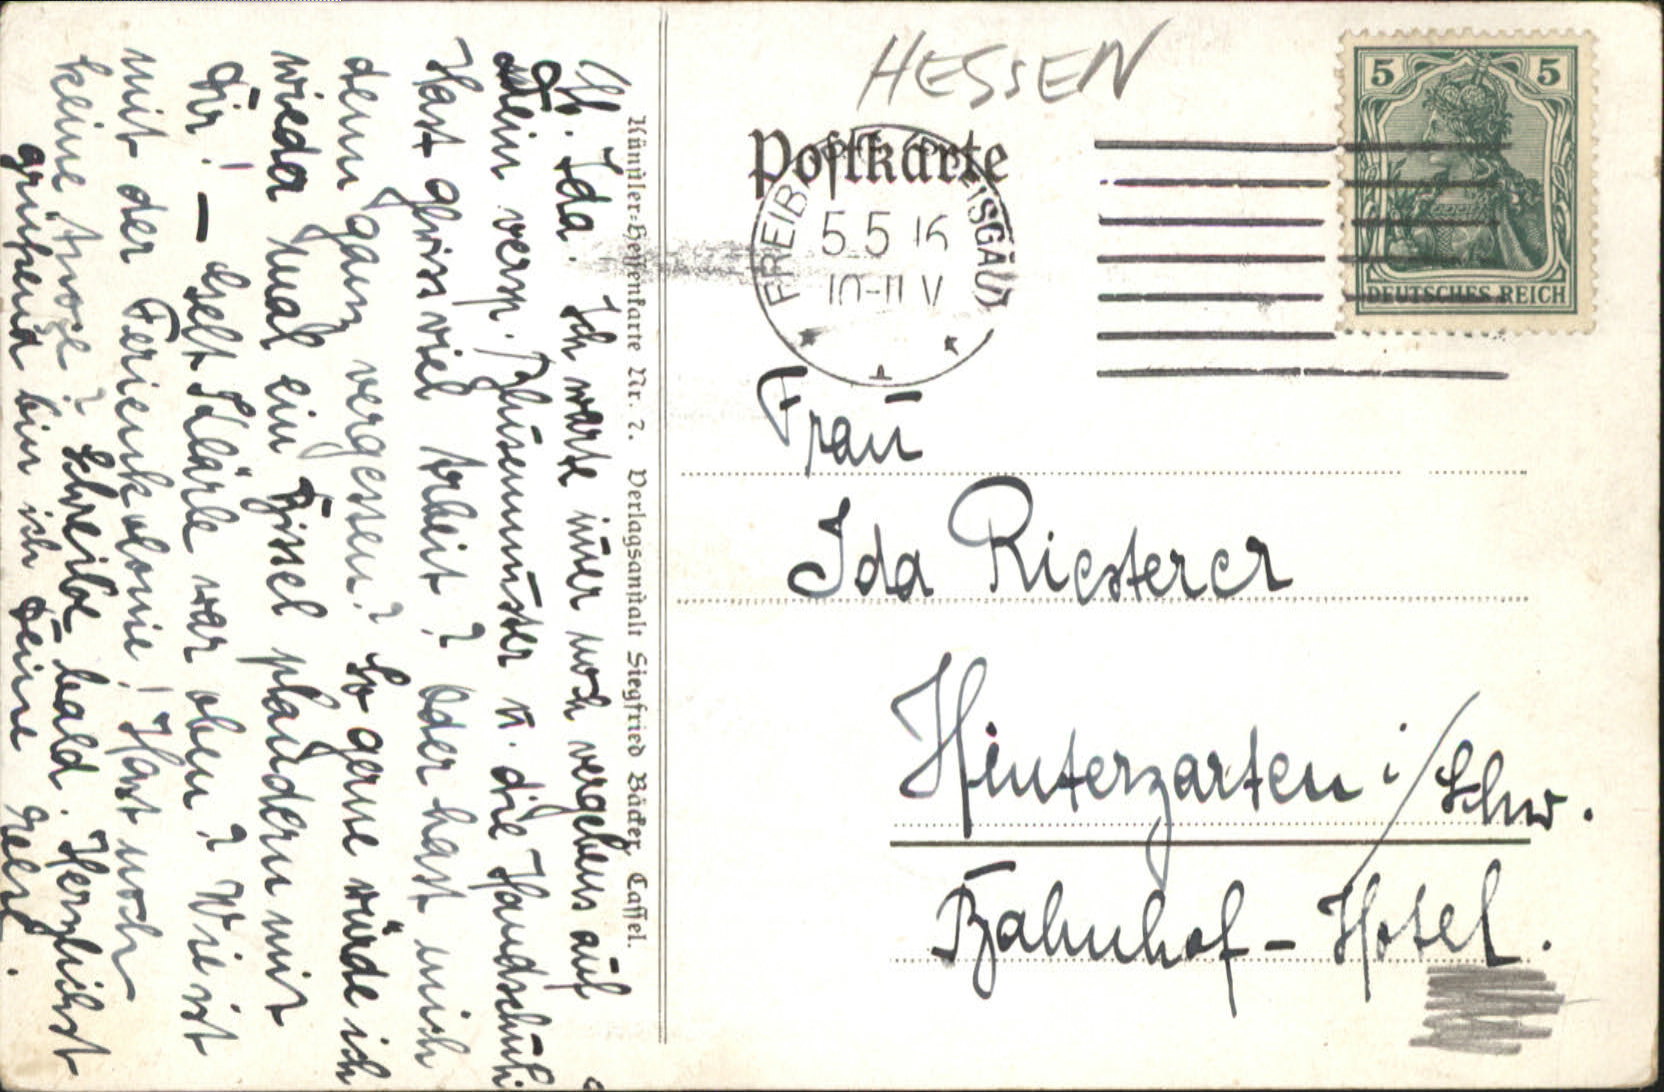 HESSEN
Postkarte
FREIBURG BREISGAU
5 5 16
10-11 V
1
5 5
DEUTSCHES REICH
Frau
Ida Riesterer
Hinterzarten i/Schw.
Bahnhof-Hotel.
Künstler-Hessenkarte Nr. 2. Verlagsanstalt Siegfried Bäcker, Cassel.
Lb. Ida. Ich warte imer noch vergebens auf
Dein versp. Blusenmuster u. die Handschuh
Hast gwiss viel Arbeit? Oder hast mich
denn ganz vergessen? So gerne würde ich
wieda mal ein Bissel plaudern mit
Dir! — Gelt Klärle war oben? Wie ist
mit der Ferienkolonie! Hast noch
keine ? Schreibe bald. Herzlichst
grüssend bin ich Deine